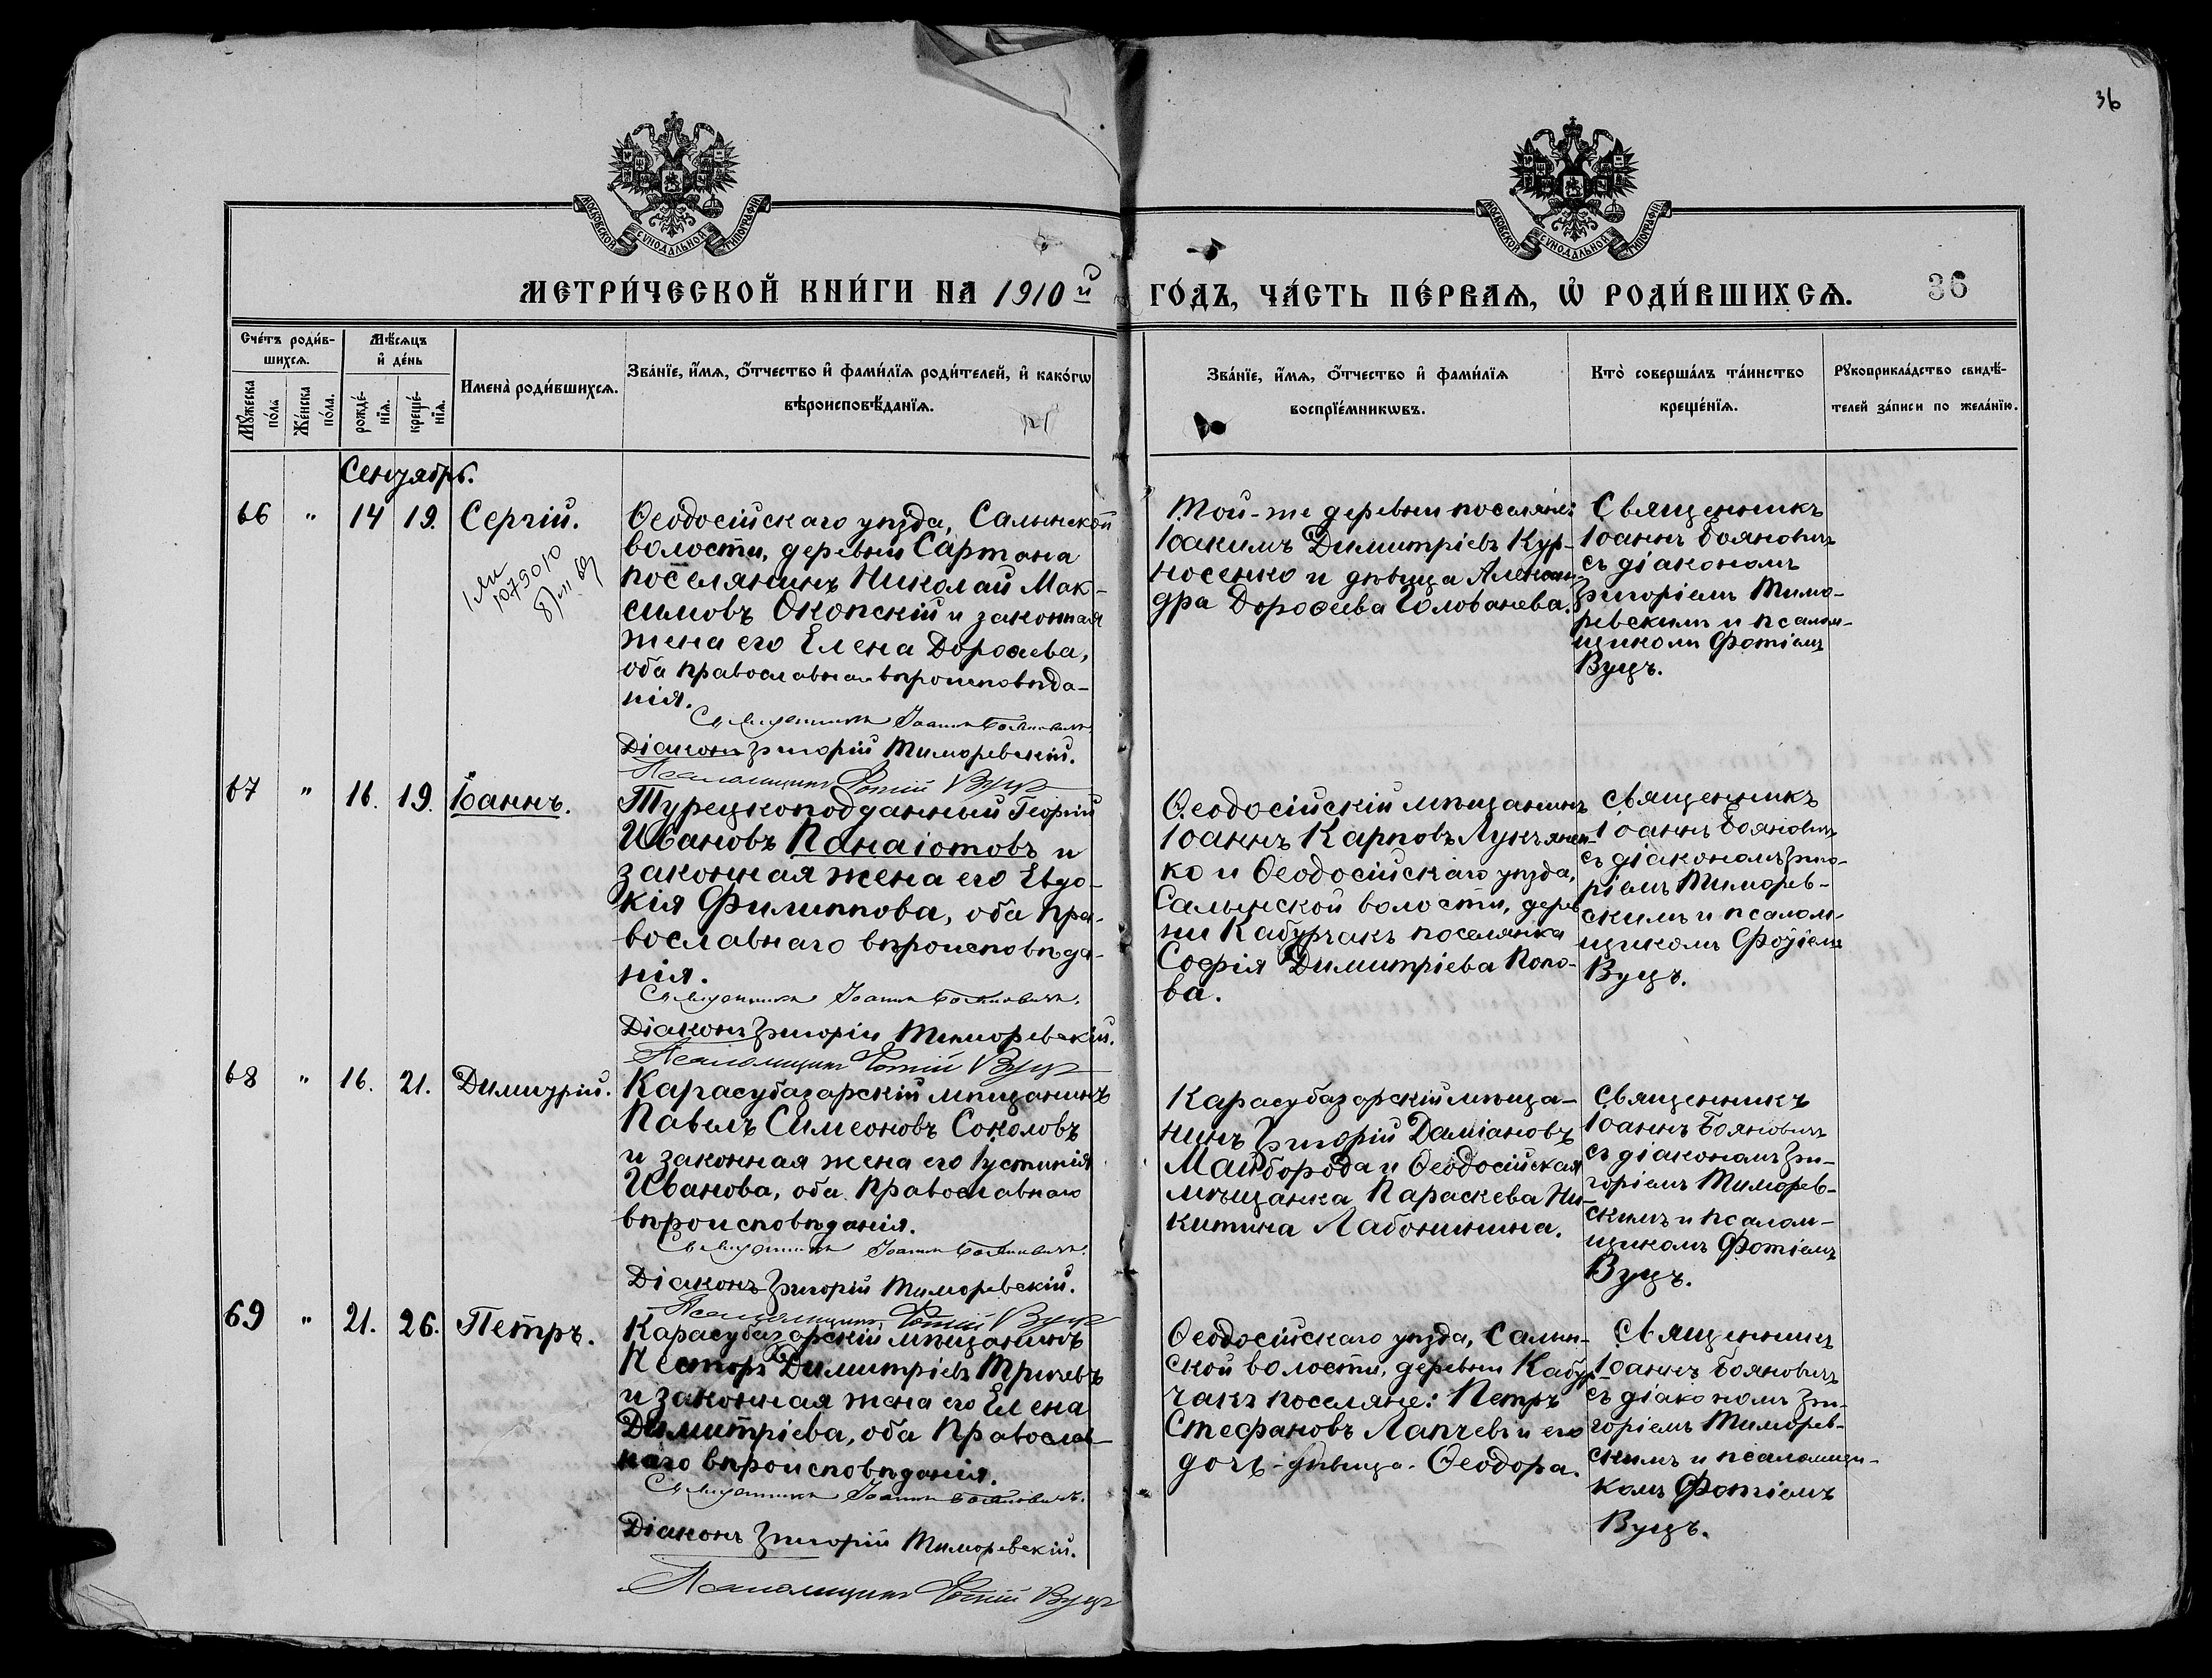 36
МОСКОВСКОЙ СѴНОДАЛЬНОЙ ТИПОГРАФІИ
МОСКОВСКОЙ СѴНОДАЛЬНОЙ ТИПОГРАФІИ
МЕТРИ́ЧЕСКОЙ КНИ́ГИ НА 1910й
ГО́ДЪ, ЧА́СТЬ ПЕ́РВАѦ, Ѽ РОДИ́ВШИХСѦ.
36
Сче́тъ роди́в-
шихсѧ.
Мѣ́сѧцъ
и҆ де́нь
Мꙋ́жеска
по́ла
Же́нска
по́ла.
рожде́-
нїѧ.
креще́-
нїѧ.
Имена̀ роди́вшихсѧ.
Зва́нїе, и҆́мѧ, ѻ҆́тчество и҆ фами́лїѧ роди́телей, и҆ како́гѡ
вѣроисповѣ́данїѧ.
Зва́нїе, и҆́мѧ, ѻ҆́тчество и҆ фами́лїѧ
воспрїе́мникѡвъ.
Кто̀ соверша́лъ та́инство
креще́нїѧ.
Рꙋкоприкла́дство свидѣ́-
телей за́писи по жела́нїю.
Сентябрь.
66 " 14 19. Сергій.
Ѳеодосійскаго уѣзда, Салынской
волости, деревни Сартана
поселянинъ Николай Мак-
симовъ Окопскій и законная
жена его Елена Дороѳева,
оба православнаго вѣроисповѣда-
нія.
Священникъ Іоаннъ Бояновичъ.
Діаконъ Григорій Тиморевскій.
Псаломщикъ Фотій Вуцъ
Той-же деревни поселяне:
Іоакимъ Димитріевъ Кур-
носенко и дѣвица Алексан-
дра Дороѳеева Голованева.
Священникъ
Іоаннъ Бояновичъ
съ діакономъ
Григоріемъ Тимо-
ревскимъ и псалом-
щикомъ Фотіемъ
Вуцъ.
67 " 16. 19. Іоаннъ.
Турецкоподданный Георгій
Ивановъ Панаіотовъ и
законная жена его Евдо-
кія Филиппова, оба пра-
вославнаго вѣроисповѣда-
нія.
Священникъ Іоаннъ Бояновичъ.
Діаконъ Григорій Тиморевскій.
Псаломщикъ Фотій Вуцъ
Ѳеодосійскій мѣщанинъ
Іоаннъ Карповъ Лукъянен-
ко и Ѳеодосійскаго уѣзда,
Салынской волости, дерев
ни Кабурчакъ поселянка
Софія Димитріева Попо-
ва.
Священникъ
Іоаннъ Бояновичъ
съ діакономъ Григо-
ріемъ Тиморев-
скимъ и псалом-
щикомъ Фотіемъ
Вуцъ.
68 " 16. 21. Димитрій.
Карасубазарскій мѣщанинъ
Павелъ Симеоновъ Соколовъ
и законная жена его Іустинія
Иванова, оба православнаго
вѣроисповѣданія.
Священникъ Іоаннъ Бояновичъ.
Діаконъ Григорій Тиморевскій.
Псаломщикъ Фотій Вуцъ
Карасубазарскій мѣща-
нинъ Григорій Даміановъ
Майборода и Ѳеодосійская
мѣщанка Параскева Ни-
китина Лабонинина.
Священникъ
Іоаннъ Бояновичъ
съ діакономъ Гри-
горіемъ Тиморев-
скимъ и псалом-
щикомъ Фотіемъ
Вуцъ.
69 " 21. 26. Петръ.
Карасубазарскій мѣщанинъ
Несторъ Димитріевъ Тричевъ
и законная жена его Елена
Димитріева, оба Православ-
наго вѣроисповѣданія.
Священникъ Іоаннъ Бояновичъ.
Діаконъ Григорій Тиморевскій.
Псаломщикъ Фотій Вуцъ
Ѳеодосійскаго уѣзда, Салын-
ской волости, деревни Кабур-
чакъ поселяне: Петръ
Стефановъ Лапчевъ и его
дочь-дѣвица Ѳеодора.
Священникъ
Іоаннъ Бояновичъ
съ діакономъ Гри-
горіемъ Тиморев-
скимъ и псаломщи-
комъ Фотіемъ
Вуцъ.